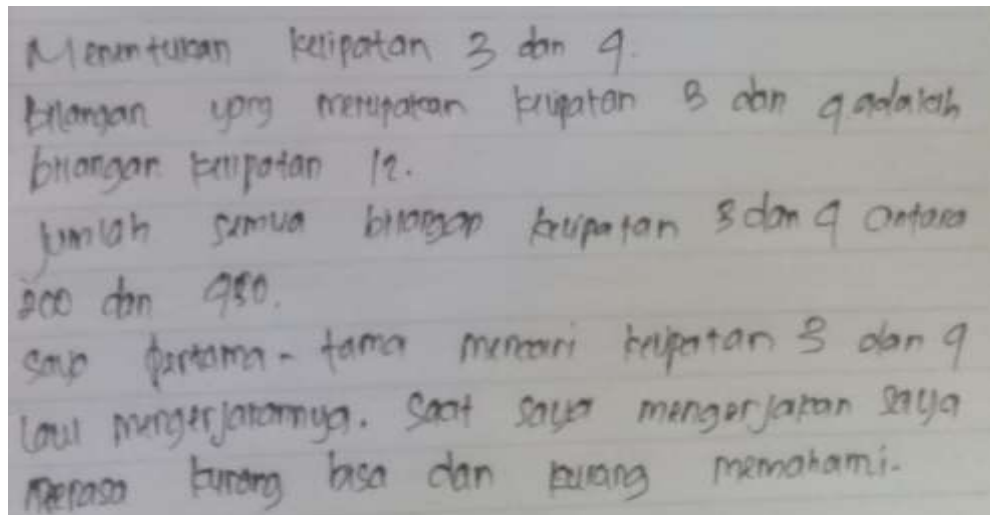 Menentukan kelipatan 3 dan 4.
Bilangan yang merupakan kelipatan 3 dan 4 adalah
bilangan kelipatan 12.
Jumlah semua bilangan kelipatan 3 dan 4 antara
200 dan 450.
saya pertama-tama mencari kelipatan 3 dan 4
lalu mengerjakannya. Saat saya mengerjakan saya
merasa kurang bisa dan kurang memahami.